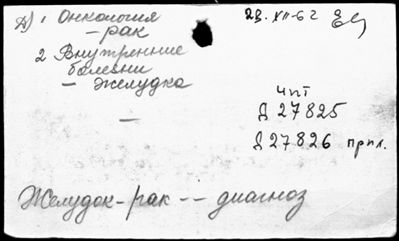 Д) 1 Онкология
– рак
23.XII-62
2 Внутренние
болезни
– желудка
—
чит
Д 27825
Д 27826 прил.
Желудок-рак -- диагноз